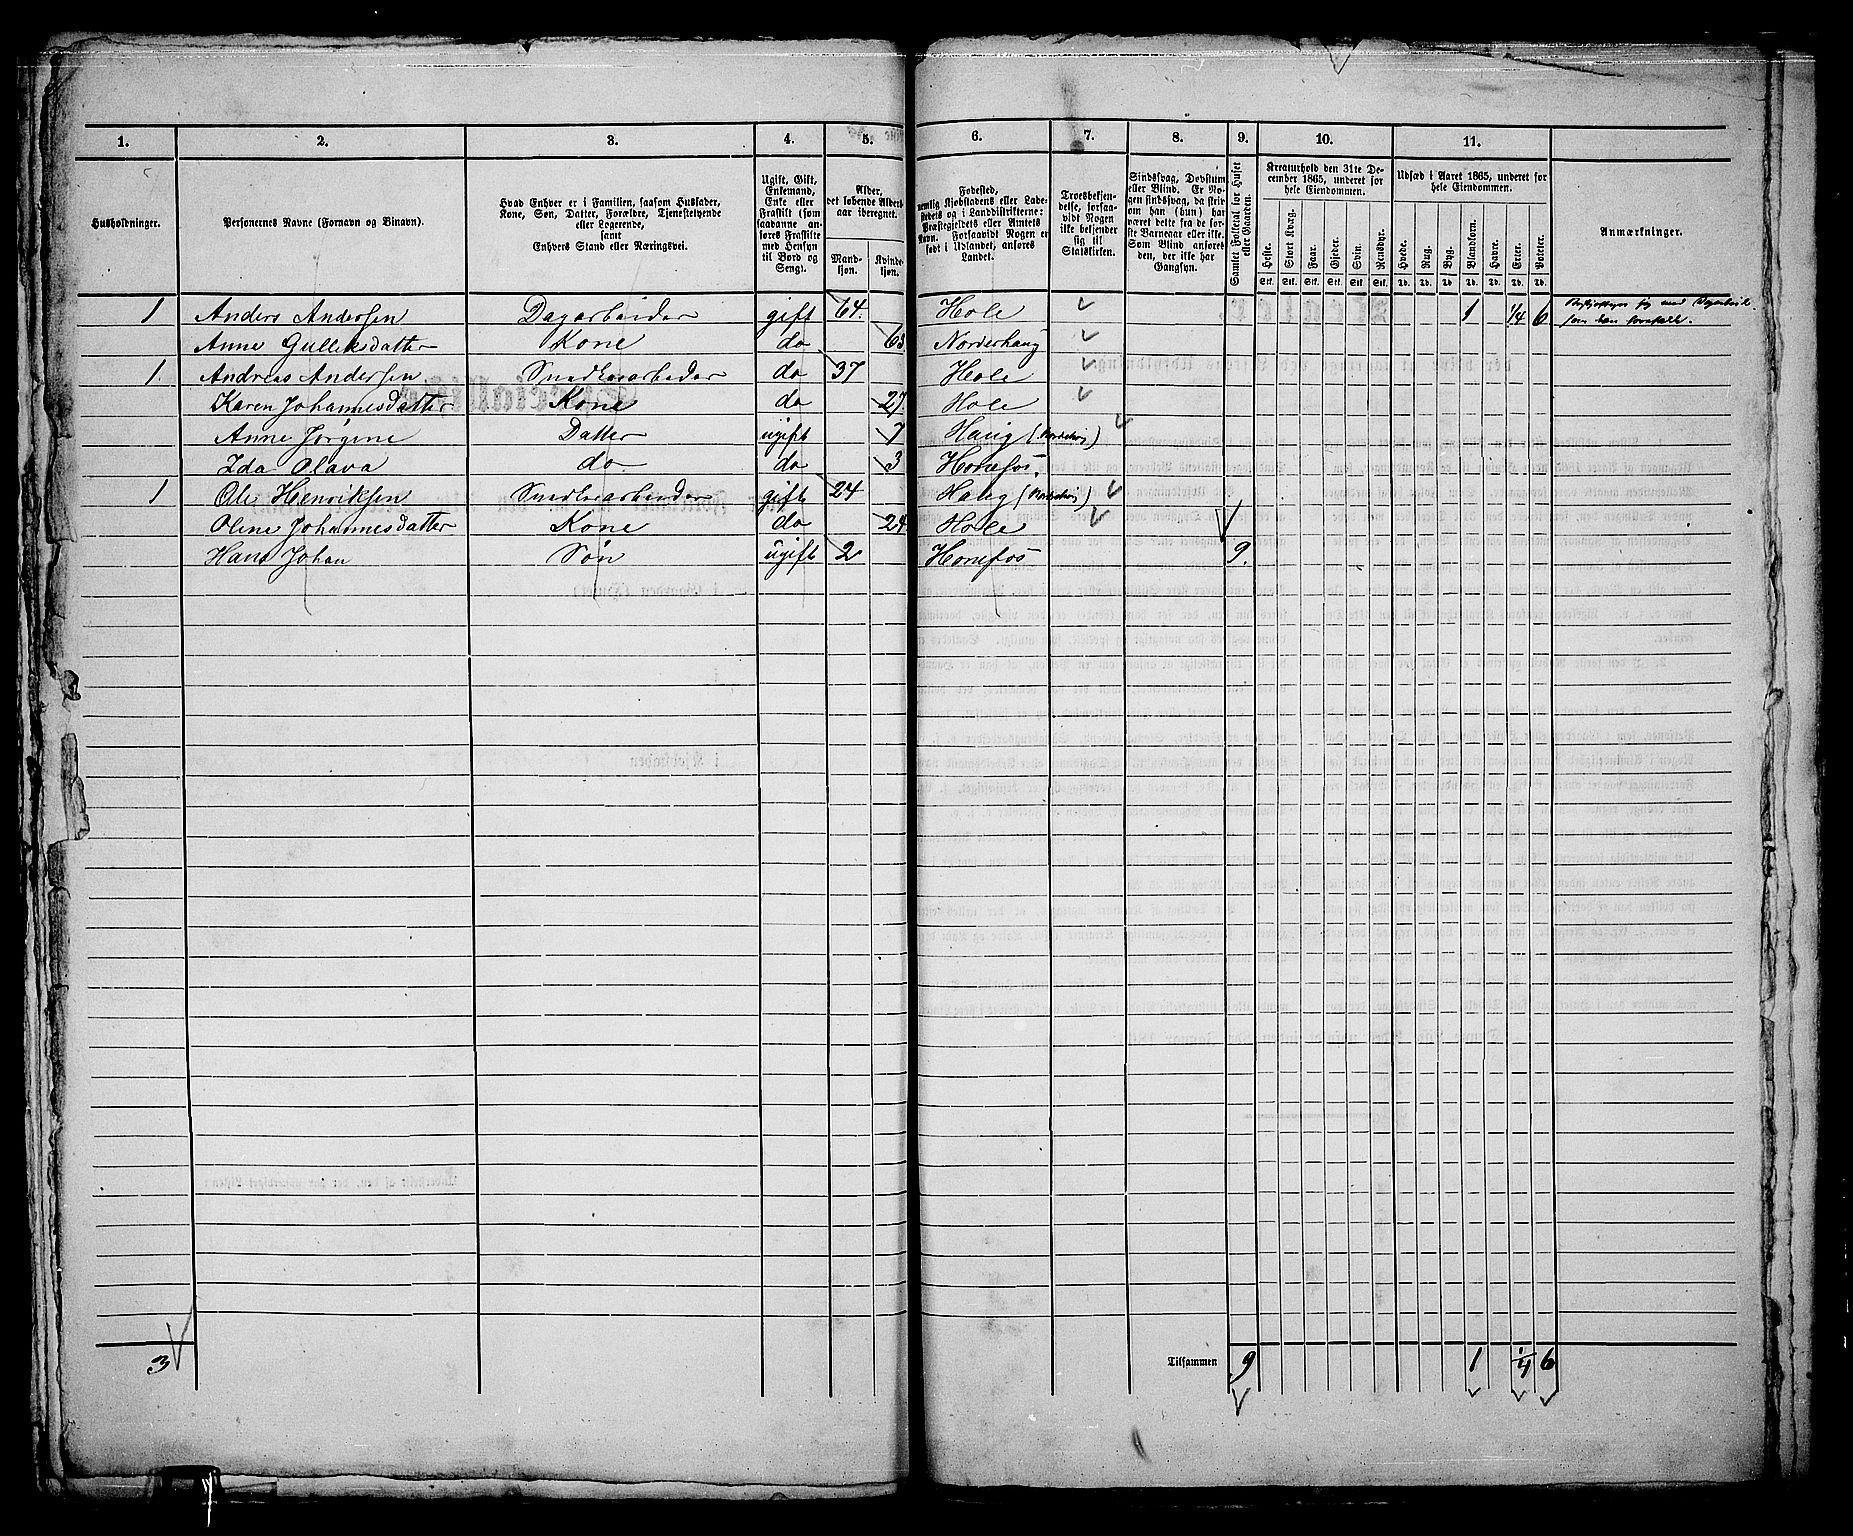 1. 2. 3. 4. 5. 6. 7. 8. 9. 10. 11.
Husholdninger.
Personernes Navne (Fornavn og Binavn).
Hvad Enhver er i Familien, saasom Husfader,
Kone, Søn, Datter, Forældre, Tjenestetyende
eller Logerende,
samt
Enhvers Stand eller Næringsvei.
Ugift, Gift,
Enkemand,
Enke eller
Fraskilt (som
saadanne anføres Fraskilte
med Hensyn
til Bord og
Seng).
Alder,
det løbende Alders-
aar iberegnet.
Mandkjøn.
Kvindekjøn.
Fødested,
nemlig Kjøbstadens eller Ladestedets og i Landdistrikterne:
Præstegjeldets eller Amtets
Navn. Forsaavidt Nogen er
født i Udlandet, anføres
Landet.
Troesbekjendelse, forsaavidt Nogen
ikke bekjender
sig til
Statskirken.
Sindssvag, Døvstum
eller Blind. Er Nogen sindssvag, da skrives om han (hun) har
været dette fra de første Barneaar eller ikke.
Som Blind anføres
den, der ikke har
Gangsyn.
Samlet Folketal for Huset
eller Gaarden.
Kreaturhold den 31te December 1865, underet for
hele Eiendommen.
Heste. Stort Kvæg. Faar. Gjeder. Svin. Rensdyr.
Stk. Stk. Stk. Stk. Stk. Stk.
Udsæd i Aaret 1865, underet for
hele Eiendommen.
Hvede. Rug. Byg. Blandkorn. Havre. Erter. Poteter.
Td. Td. Td. Td. Td. Td. Td.
Anmærkninger.
1 Anders Andersen Dagarbeider gift 64. Hole 1 1/4 6
Anne Gulleksdatter Kone do 63. Norderhaug
1. Andreas Andersen Snedkerarbeder do 37 Hole
Karen Johannesdatter Kone do 27. Hole
Anne Jørgine Datter ugift 7 Haug
Ida Olava do do 3 Hønefos.
1 Ole Henriksen Snedkerarbeider gift 24 Haug
Oline Johannesdatter Kone do 24. Hole
Hans Johan Søn ugift 2 Hønefos 9.
3 Tilsammen 9 1 1/4 6